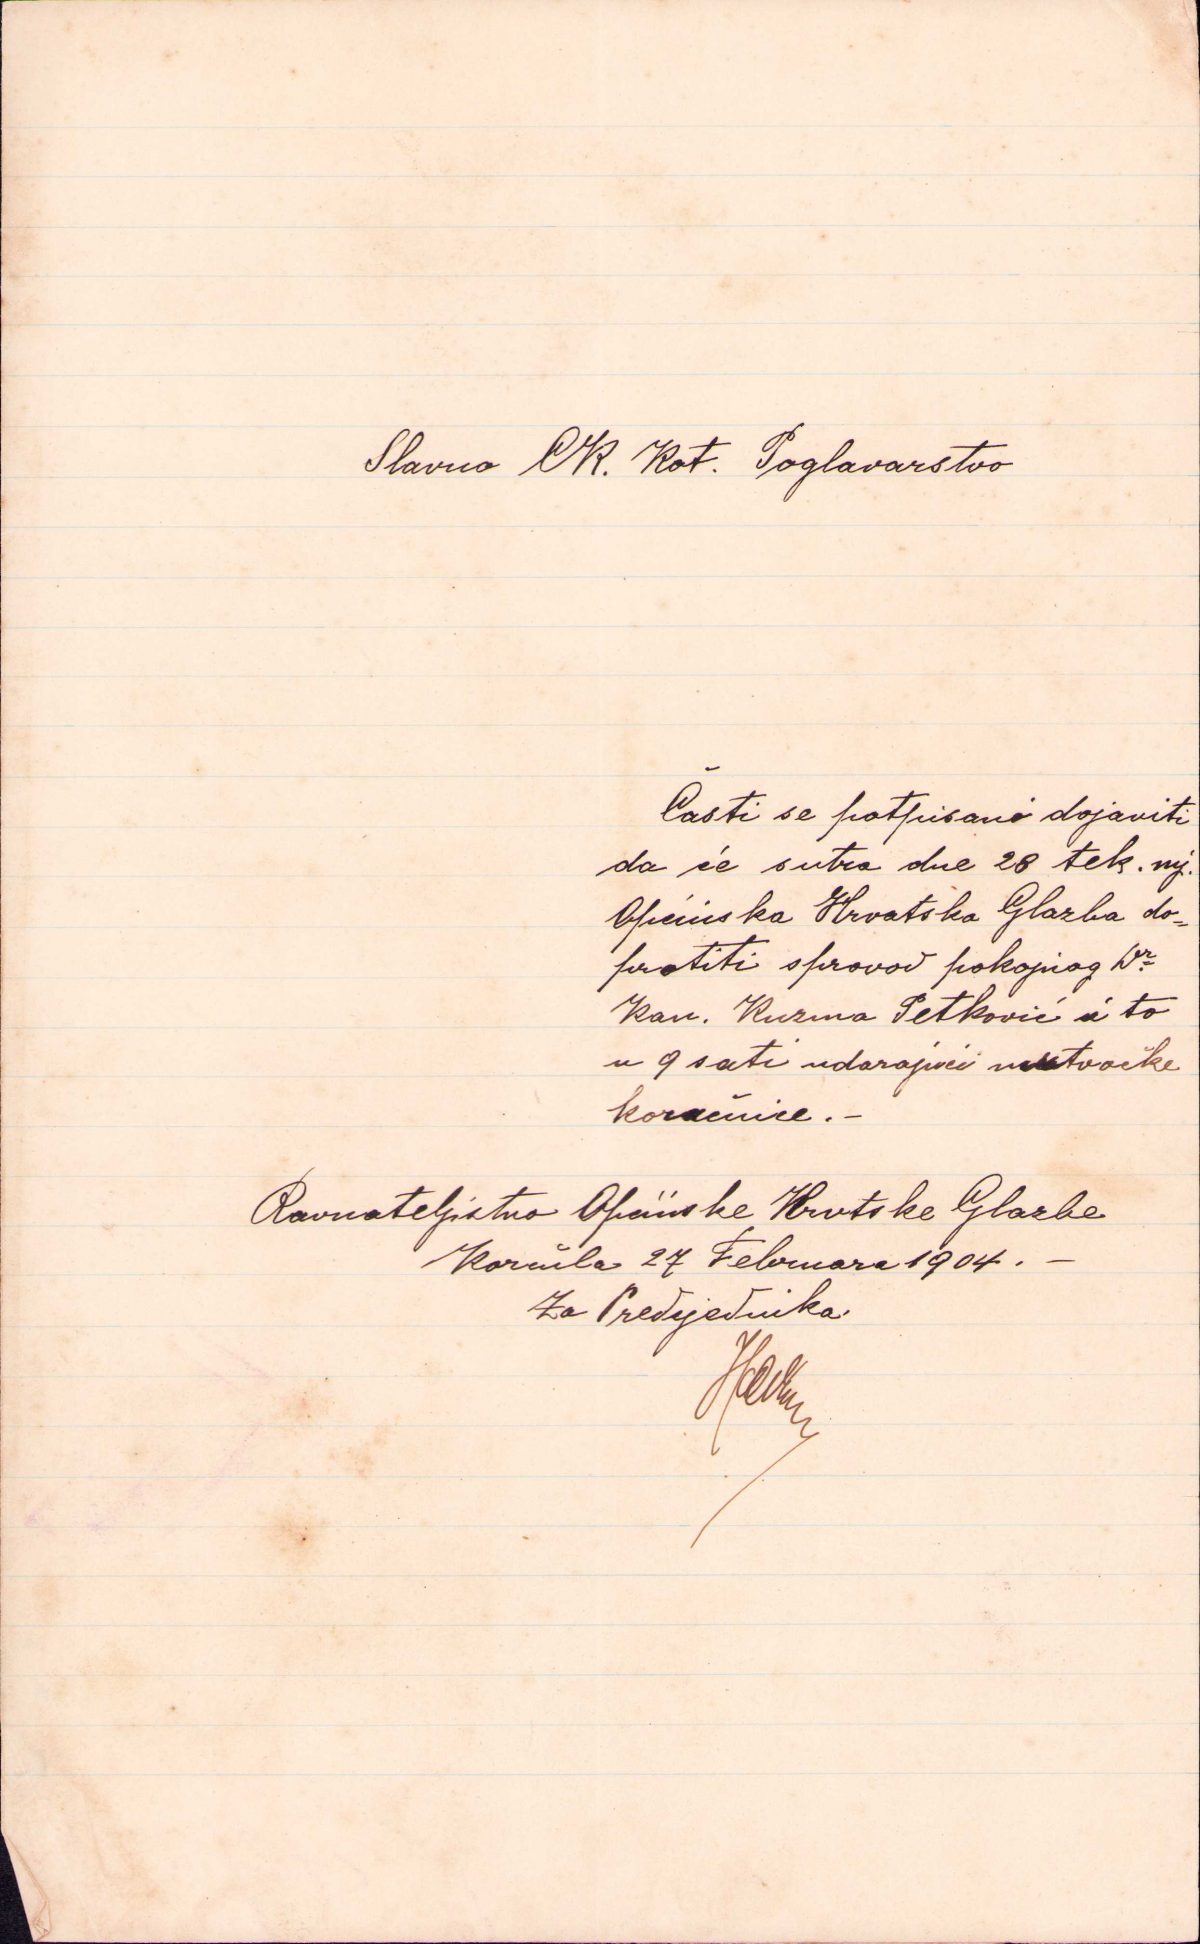 Slavno CK. Kot. Poglavarstvo
Časti se potpisani dojaviti
da će sutra dne 28 tek. mj.
Općinska Hrvatska Glazba do=
pratiti sprovod pokojnog Dr.
Kan. Kuzma Petković i to
u 9 sati udarajući mrtvačke
koračnice. -
Ravnateljstvo Općinske Hrvtske Glazbe
Korčula 27 Februara 1904. -
Za Predsjednika.